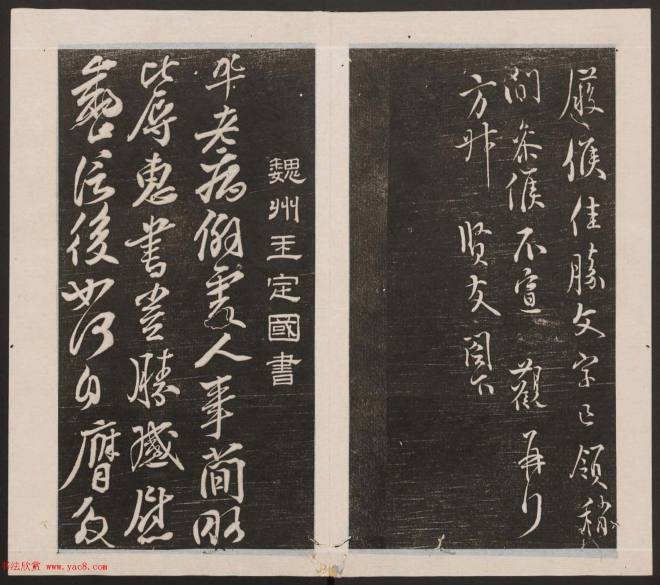 履候佳勝文字已領稍
間參候不宣 觀再行
方叔 賢友閣下
魏州王定國書
平老病倒處人事簡略
比辱惠書豈勝感慰
信後如何自膺
书法欣赏 www.yac8.com